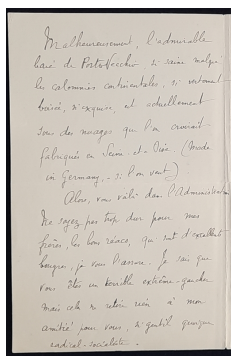 Malheureusement, l'admirable
baie de Porto-Vecchio, si saine malgré
les calomnies continentales, si vertement
boisée, si exquise, est actuellement
sous des nuages que l'on croirait
fabriqués en Seine-et-Oise (Made
in Germany, - si l'on veut)
Alors, vous voilà dans l'Administration
Ne soyez pas trop dur pour mes
frères, les bons réacs, qui sont d'excellents
bougres, je vous l'assure. Je sais que
vous êtes un terrible extrême-gauche
mais cela ne retire rien à mon
amitié pour vous, si gentil quoique
radical-socialiste.